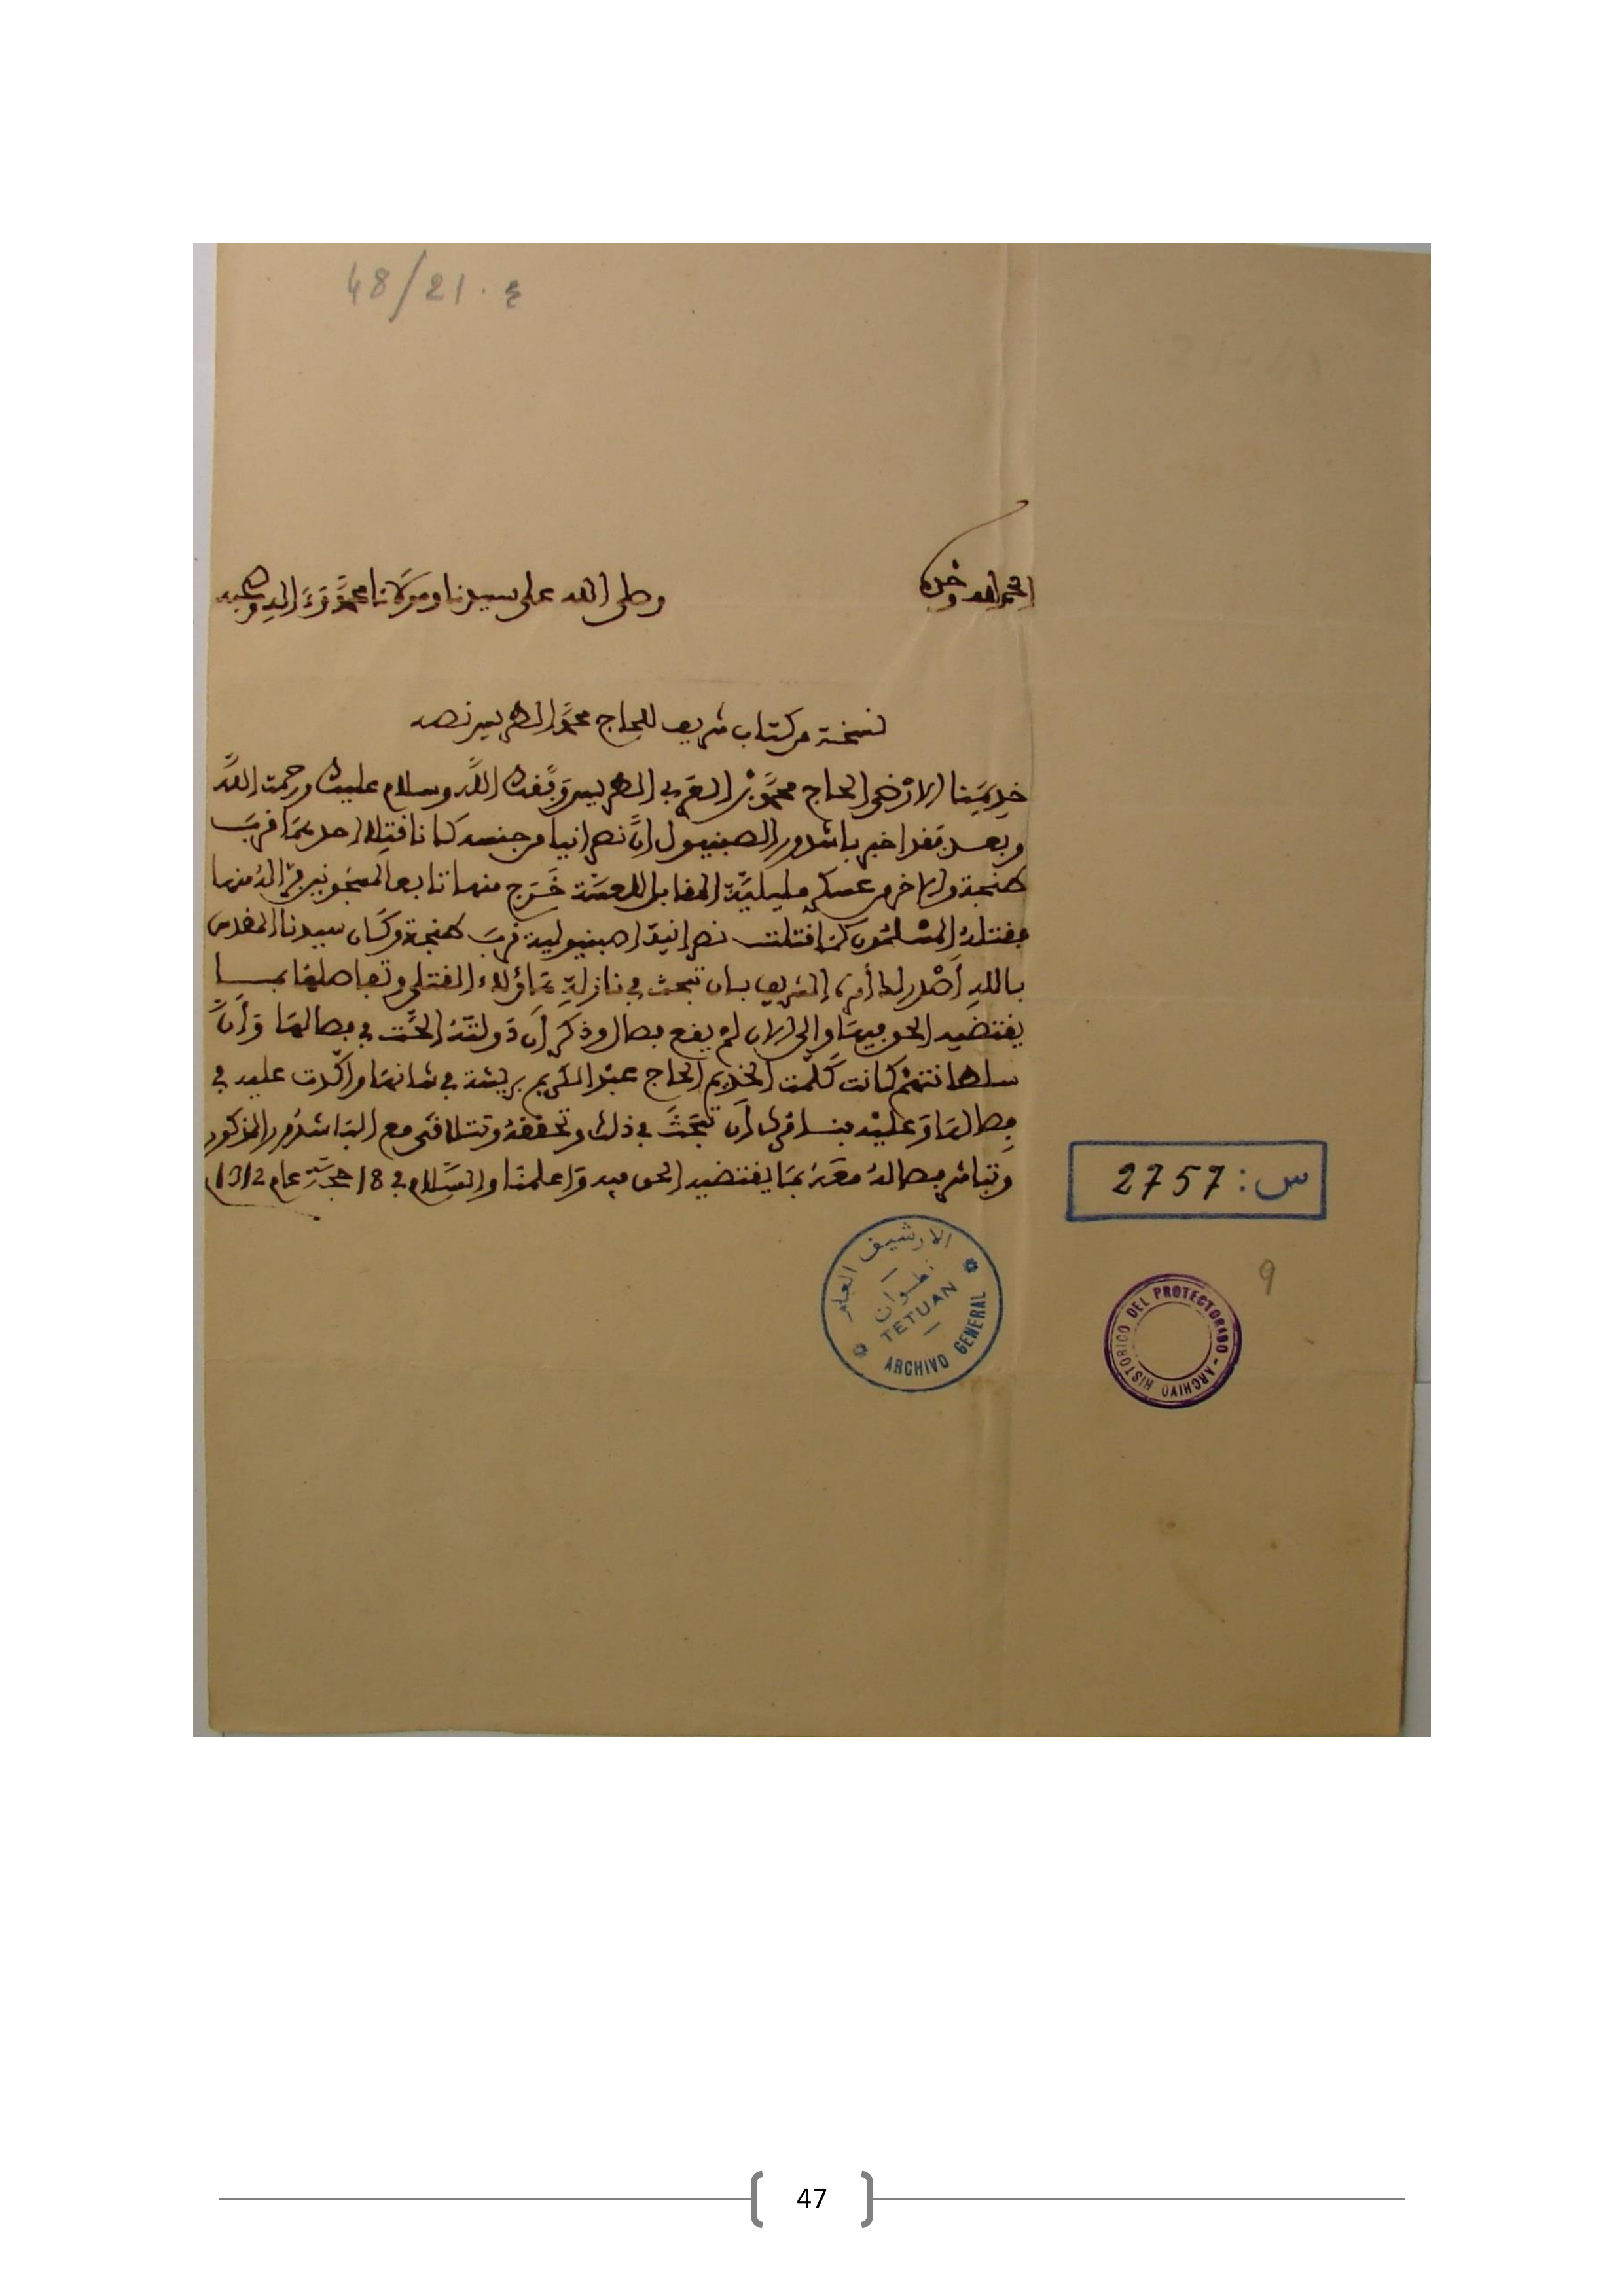 48/21 . ع
الحمد لله وحده
وصلى الله على سيدنا ومولانا محمد وءاله وصحبه
نسخة من كتاب شريف للحاج محمد الطريس نصه
خديمنا الارضى الحاج محمد بن العربي الطريس وفقك الله وسلام عليك ورحمت الله
وبعد فقد اخبر باشدور الصبنيول ان نصرانيا من جنسه كانا قتلا احدهما قرب
طنجة والاخر من عسكر مليلية المقابل للعسة خرج منها تابعا لمسجونين
فقتله المسلمون كما قتلت نصرانية اصبنيولية قرب طنجة وكان سيدنا المقدس
بالله أصدر لك أمره الشريف بان تبحث في نازلة هاؤلاء القتلى وتفاصلها بما
يقتضيه الحق فيها والى الان لم يقع فصال وذكر أن دولته الحت في فصالها وأن
سلطانتهم كانت كلمت الخديم الحاج عبد الكريم بريشة في شانها واكدت عليه في
فصالها وعليه فنامرك أن تبحث في ذلك وتحققه وتتلاقى مع الباشدور المذكور
وتباشر فصاله معه بما يقتضيه الحق فيه واعلمنا والسلام في 18 حجة عام 1312
س: 2757
الارشيف العام
تطوان
TETUAN
ARCHIVO GENERAL
9
ARCHIVO HISTORICO DEL PROTECTORADO
47